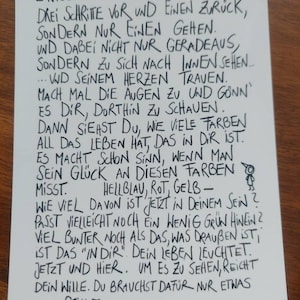 DREI SCHRITTE VOR UND EINEN ZURÜCK,
SONDERN NUR EINEN GEHEN.
UND DABEI NICHT NUR GERADEAUS,
SONDERN ZU SICH NACH INNEN SEHEN...
...UND SEINEM HERZEN TRAUEN.
MACH MAL DIE AUGEN ZU UND GÖNN'
ES DIR, DORTHIN ZU SCHAUEN.
DANN SIEHST DU, WIE VIELE FARBEN
ALL DAS LEBEN HAT, DAS IN DIR IST.
ES MACHT SCHON SINN, WENN MAN
SEIN GLÜCK AN DIESEN FARBEN
MISST. HELLBLAU, ROT, GELB –
WIE VIEL DAVON IST JETZT IN DEINEM SEIN?
PASST VIELLEICHT NOCH EIN WENIG GRÜN HINEIN?
VIEL BUNTER NOCH ALS DAS, WAS DRAUßEN IST,
IST DAS "IN DIR". DEIN LEBEN LEUCHTET.
JETZT UND HIER. UM ES ZU SEHEN, REICHT
DEIN WILLE. DU BRAUCHST DAFÜR NUR ETWAS